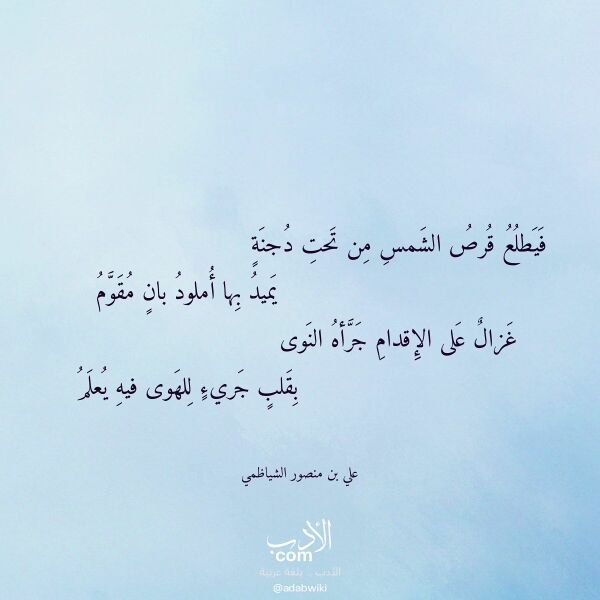 فَيَطلُعُ قُرصُ الشَمسِ مِن تَحتِ دُجنَةٍ
يَميدُ بِها أُملودُ بانٍ مُقَوَّمُ
غَزالٌ عَلى الإِقدامِ جَرَّأهُ النَوى
بِقَلبٍ جَريءٍ لِلهَوى فيهِ يُعلَمُ
علي بن منصور الشياظمي
الأدب
com
الأدب .. بلغة عربية
@adabwiki